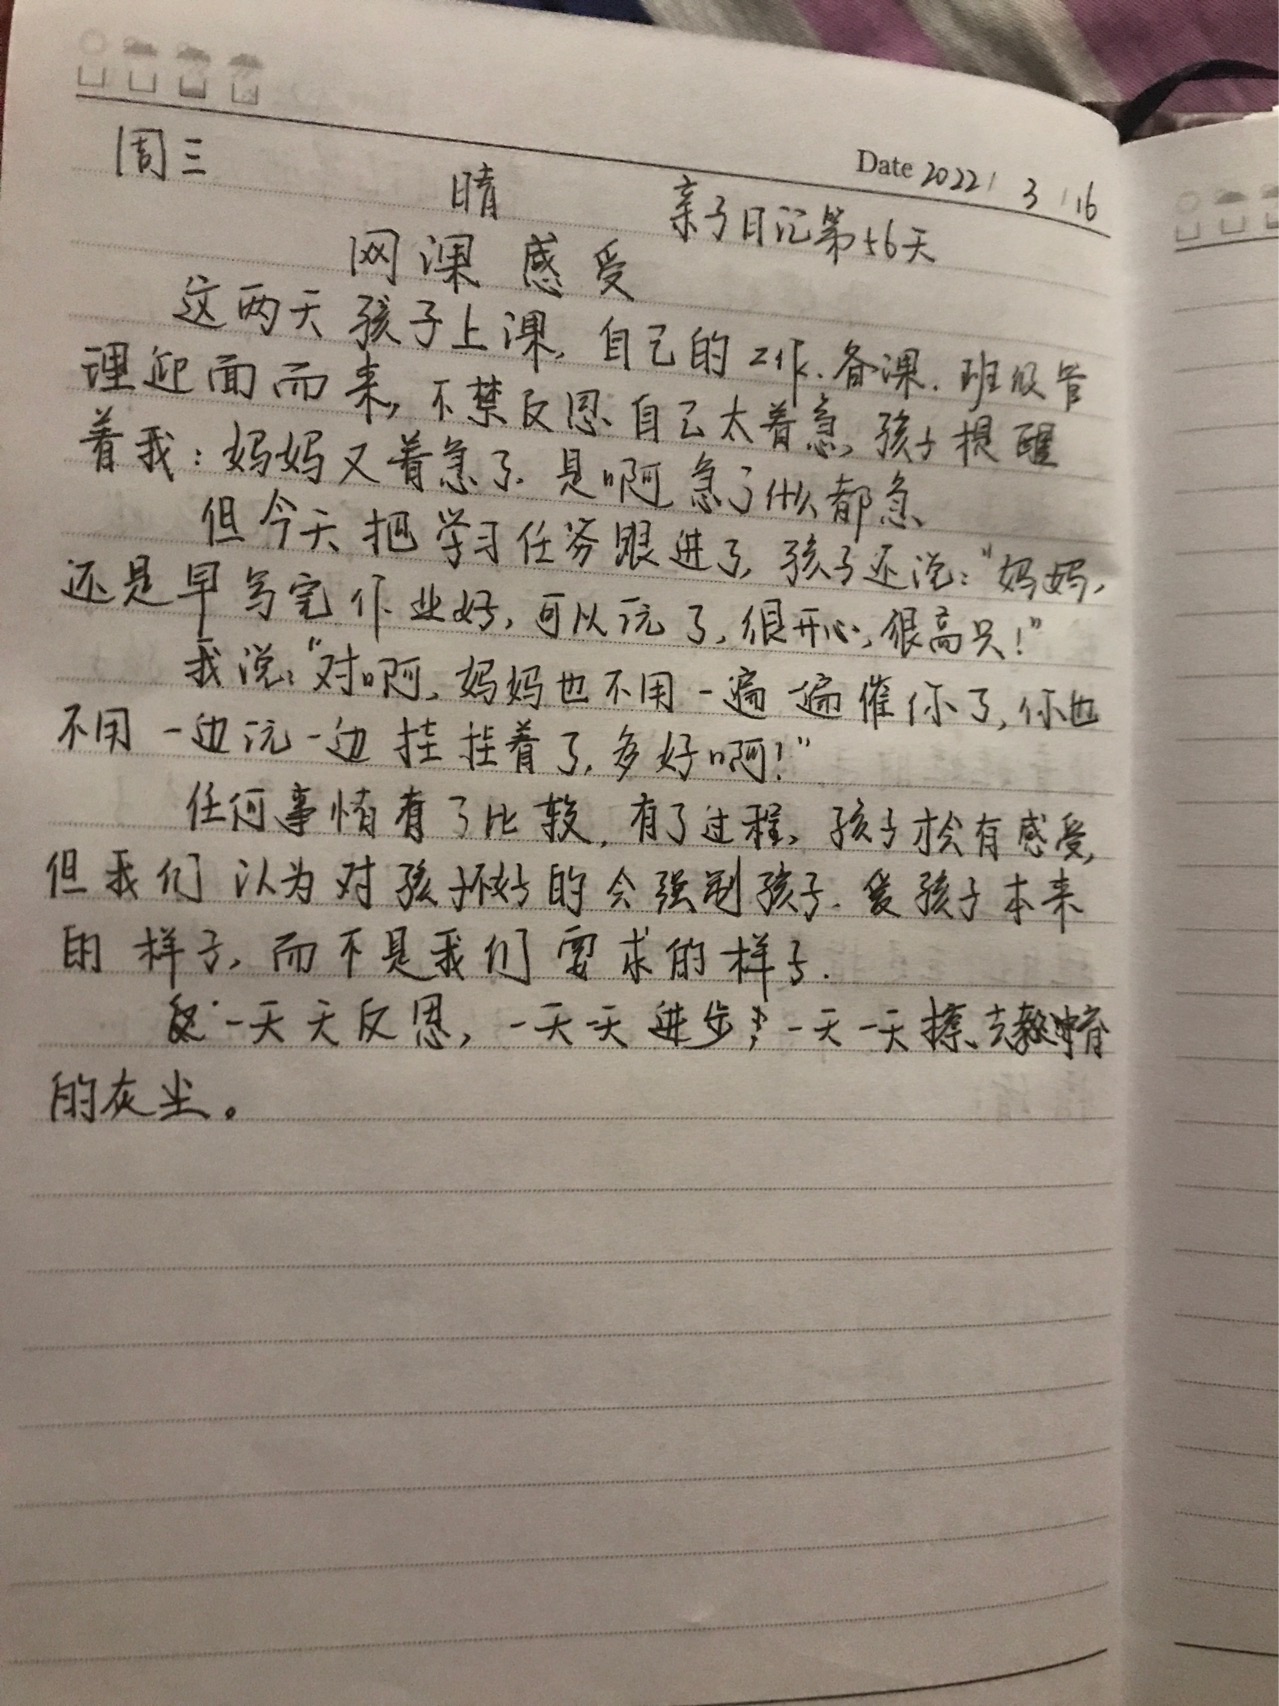 Date 2022 / 3 / 16
周三
晴 亲子日记第56天
网课感受
这两天孩子上课,自己的工作、备课、班级管
理迎面而来,不禁反思自己太着急,孩子提醒
着我:妈妈又着急了.是啊急了什么都急
但今天把学习任务跟进了,孩子还说:“妈妈,
还是早写完作业好,可以玩了,很开心,很高兴!”
我说:“对啊,妈妈也不用一遍一遍催你了,你也
不用一边玩一边挂挂着了,多好啊!”
任何事情有了比较,有了过程,孩子才会有感受,
但我们认为对孩子不好的会强制孩子.爱孩子本来
的样子,而不是我们要求的样子.
一天天反思,一天一天进步,一天一天擦去教育
的灰尘。